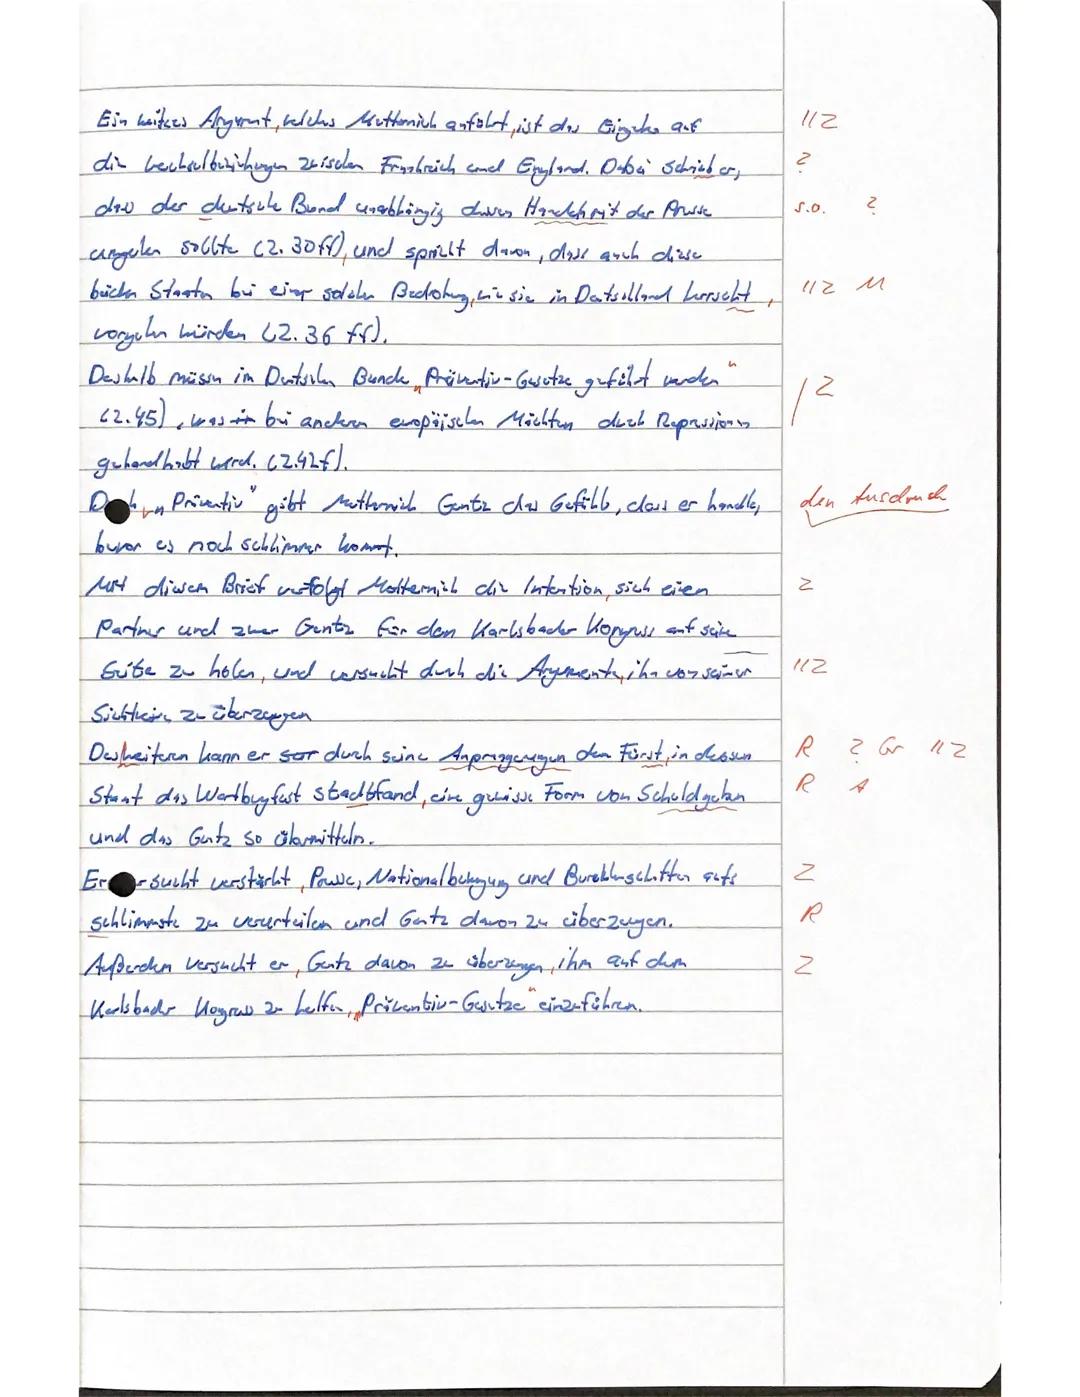 Ein weiteres Argument, welches Metternich anführt, ist das Eingehen auf 11Z
die Wechselbeziehungen zwischen Frankreich und England. Dabei schrieb er, ?
dass der deutsche Bund unabhängig davon Handeln mit der Presse s.o. ?
umgehen sollte (Z. 30ff), und spricht davon, dass auch diese
beiden Staaten bei einer solchen Bedrohung, wie sie in Deutschland herrscht, 11Z M
vorgehen würden (Z. 36 ff).
Deshalb müssen im Deutschen Bunde „Präventiv-Gesetze geführt werden"
(Z.45), was bei anderen europäischen Mächten durch Repressionen 1Z
gehandhabt werd. (Z.42f).
Durch „Präventiv" gibt Metternich Gentz das Gefühl, dass er handle, den Ausdruck
bevor es noch schlimmer kommt.
Mit diesem Brief verfolgt Metternich die Intention, sich einen Z
Partner und zwar Gentz für den Karlsbader Kongress auf seine
Seite zu holen, und versucht durch die Argumente, ihn von seiner 11Z
Sichtweise zu überzeugen
Desweiteren kann er durch seine den Fürst, in dessen R Z Gr 11Z
Staat das Wartburgfest stadtfand, eine gewisse Form von Schuld geben R A
und das Gentz so übermitteln.
Er versucht verstärkt, Presse, Nationalbewegung und Burschenschaften aufs Z
schlimmste zu verurteilen und Gentz davon zu überzeugen. R
Außerdem versucht er, Gentz davon zu überzeugen, ihm auf dem Z
Karlsbader Kogress zu helfen, „Präventiv-Gesetze" einzuführen.